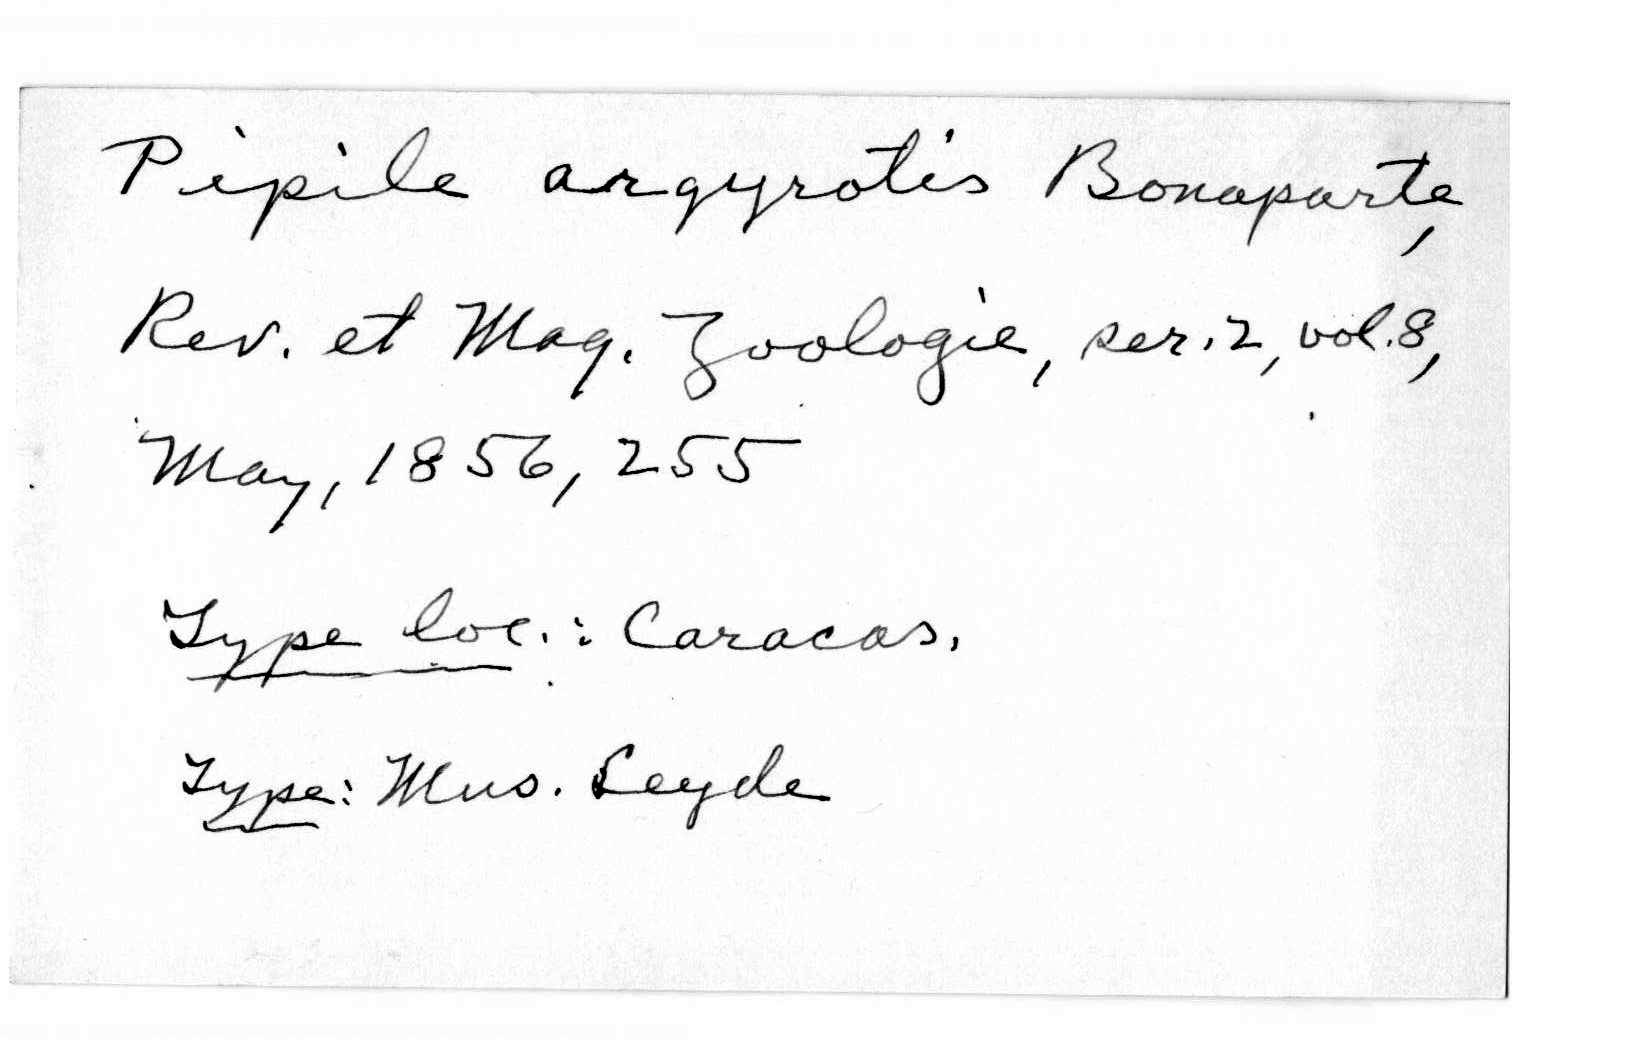 Pipile argyrotis Bonaparte,
Rev. et Mag. Zoologie, ser. 2, vol. 8,
May, 1856, 255
Type loc.: Caracas.
Type: Mus. Leyde